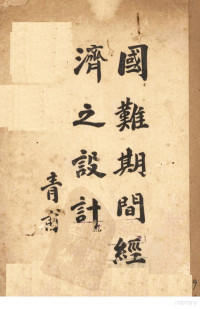 國難期間經
濟之設計
青